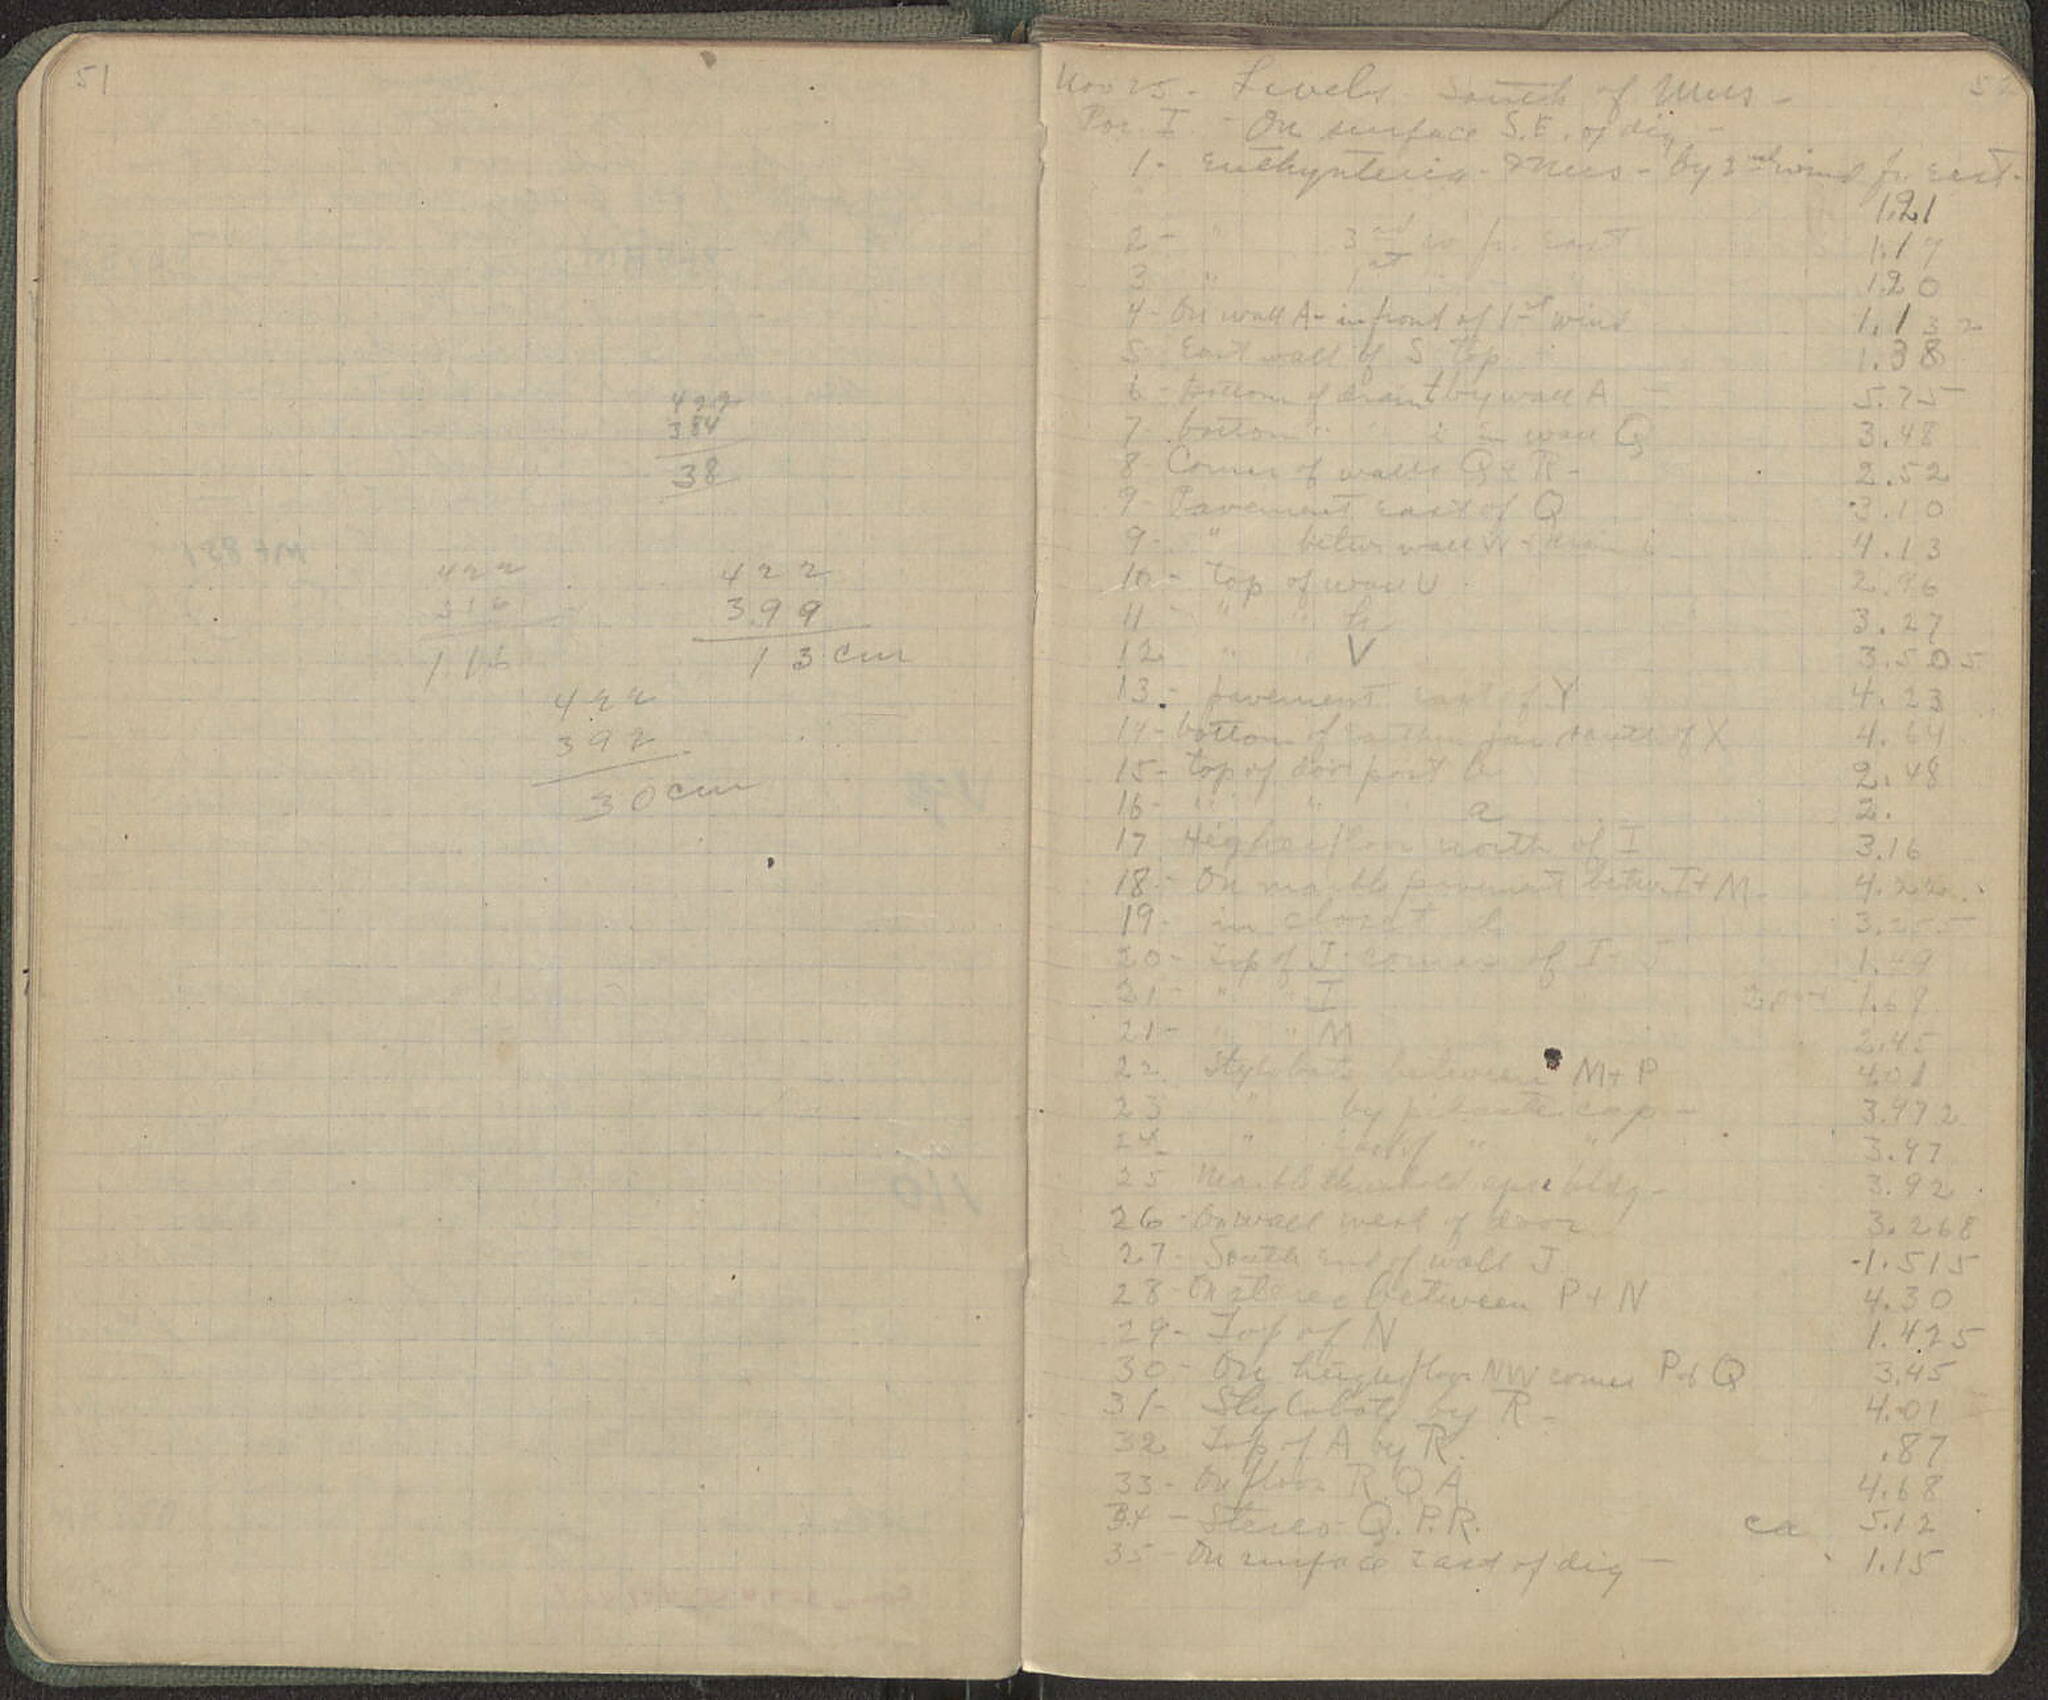 51
422
384
38
422
316
116
422
399
13 cm
422
392
30 cm
52
Nov 25 - Levels South of Mus -
Pos. I - On surface S.E. of dig -
1 - Euthynteria - Mus - by 2nd wind fr. East -
1.21
2 - " 3rd w fr. East 1.17
3 " 1st " 1.20
4 - On wall A - in front of 1st wind 1.132
5 East wall of S top - 1.38
6 - bottom of drain by wall A - 5.75
7 - bottom " " i in wall Q 3.48
8 - Corner of walls Q + R - 2.52
9 - Pavement east of Q 3.10
9 - " betw. wall W + drain i 4.13
10 - top of wall U 2.96
11 - " " h 3.27
12 " V 3.505
13 - pavement east of Y 4.23
14 - bottom of earthen jar south of X 4.64
15 - top of door post b 2.48
16 - " " a 2.
17 Higher floor north of I 3.16
18 - On marble pavement betw. I + M - 4.22
19 - in closet d 3.255
20 - Top of J corner of I - J 1.49
21 - " " I 1.69
21 - " " M 2.45
22 Stylobate between M + P 4.01
23 " by pilaster cap - 3.972
24 " east of " " 3.97
25 Marble threshold apse bldg - 3.92
26 - On wall west of door 3.268
27 - South end of wall J 1.515
28 - On stereo between P + N 4.30
29 - Top of N 1.425
30 - On higher floor NW corner P + Q 3.45
31 - Stylobate by R - 4.01
32 Top of A by R. .87
33 - On floor R Q A 4.68
34 - Stereo - Q. P. R. ca 5.12
35 - On surface east of dig - 1.15